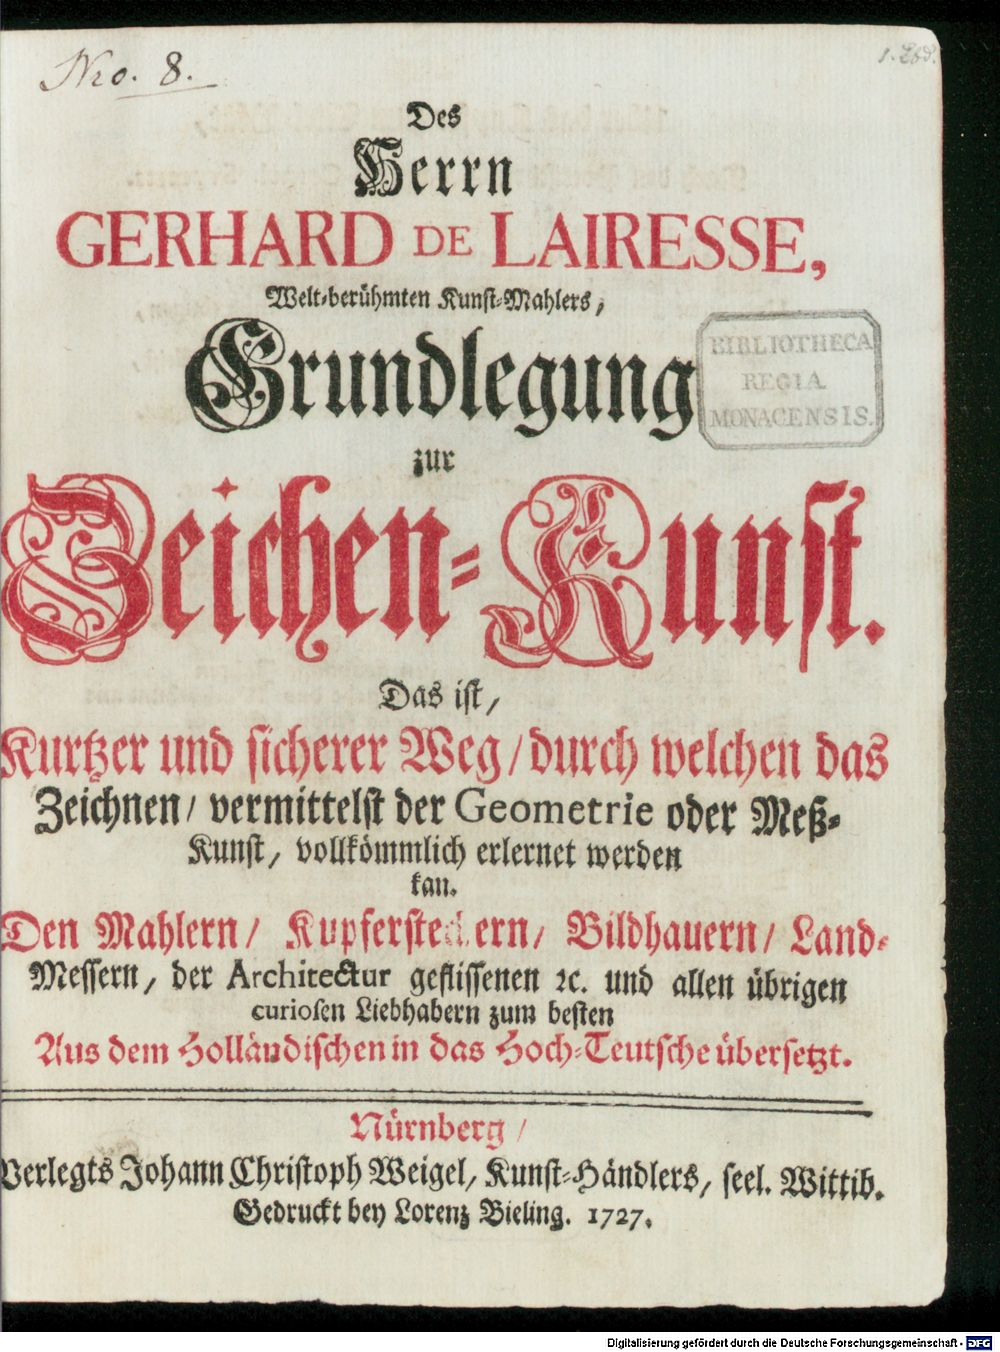 Nro. 8.
Des
Herrn
GERHARD DE LAIRESSE,
Welt-berühmten Kunst-Mahlers,
Grundlegung
BIBLIOTHECA
REGIA
MONACENSIS.
zur
Zeichen-Kunst.
Das ist,
Kurtzer und sicherer Weg/durch welchen das
Zeichnen/ vermittelst der Geometrie oder Meß-
Kunst, vollkömmlich erlernet werden
kan.
Den Mahlern/ Kupferstechern/ Bildhauern/ Land-
Messern, der Architectur geflissenen ꝛc. und allen übrigen
curiosen Liebhabern zum besten
Aus dem Holländischen in das Hoch-Teutsche übersetzt.
Nürnberg/
Verlegts Johann Christoph Weigel, Kunst-Händlers, seel. Wittib.
Gedruckt bey Lorenz Bieling. 1727.
Digitalisierung gefördert durch die Deutsche Forschungsgemeinschaft - DFG